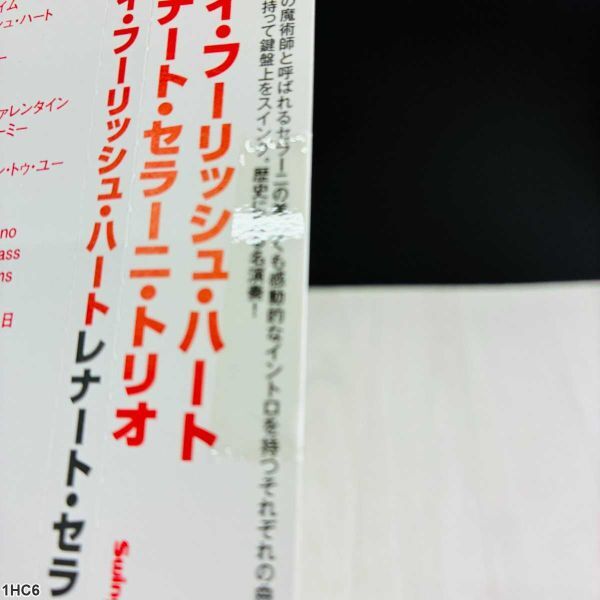 の魔術師と呼ばれるセラーニの
も感動的なイントロを持つそれぞれの曲
持って鍵盤上をスイング。歴史に
名演奏!
イ・フーリッシュ・ハート
ナート・セラーニ・トリオ
イ・フーリッシュ・ハート レナート・セラ
Swing
イム
シュ・ハート
ァレンタイン
ーミー
ン・トゥ・ユー
no
ass
ms
日
1HC6